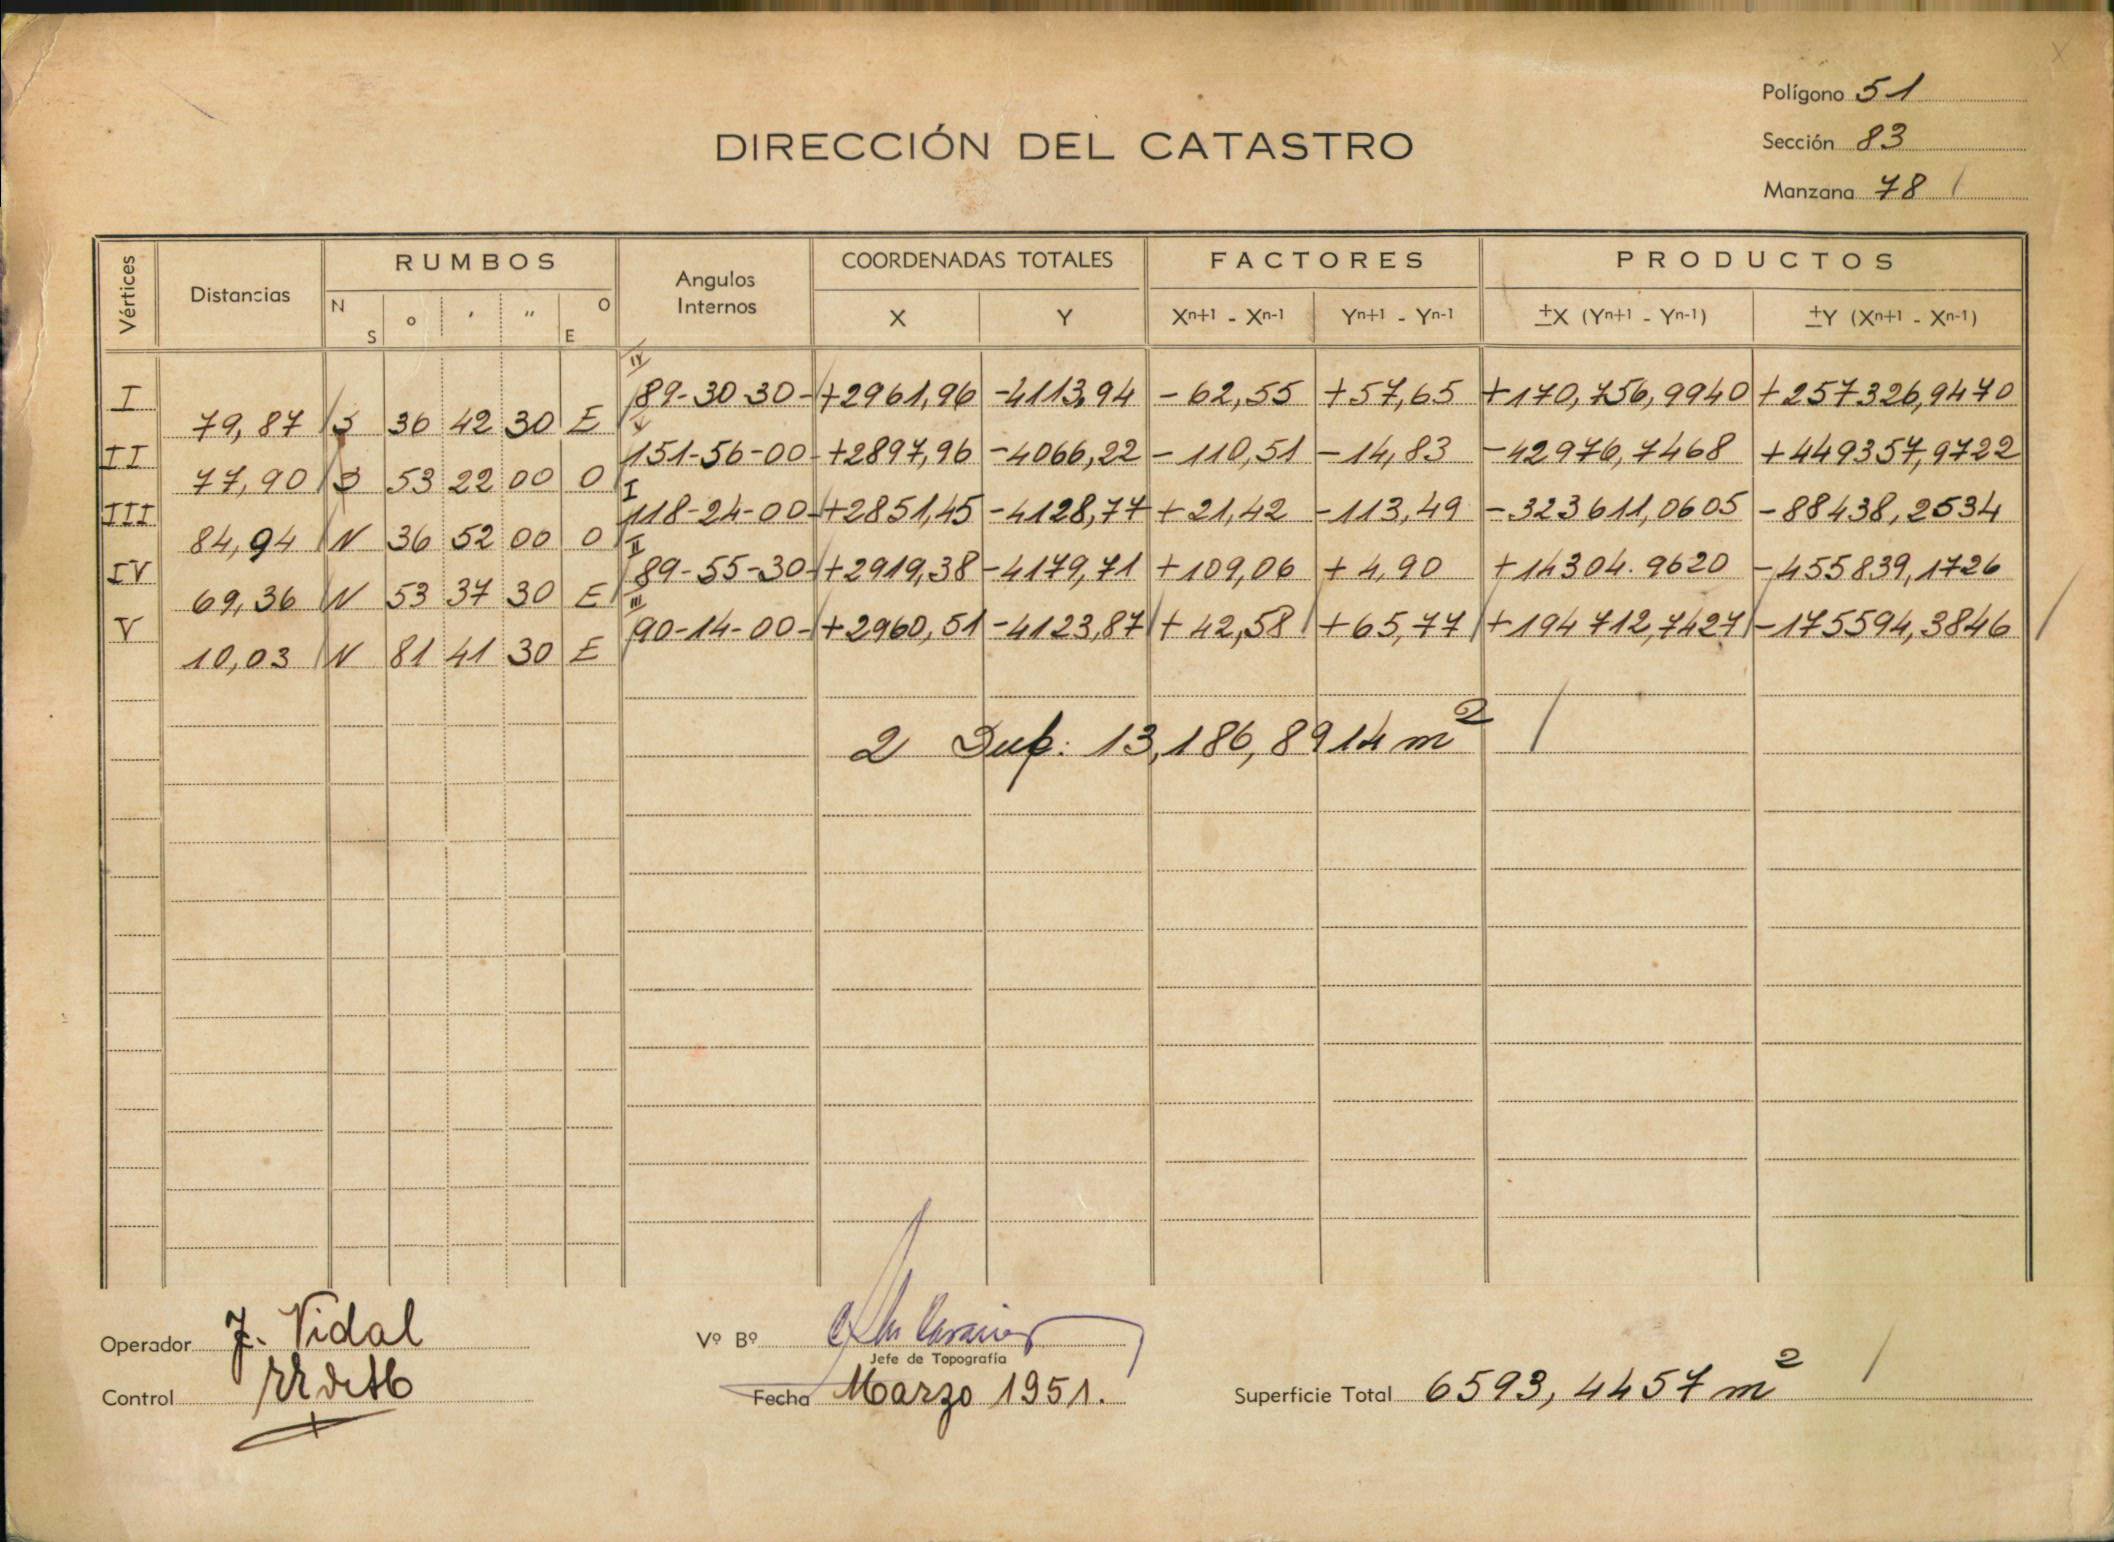 Polígono 51
DIRECCIÓN DEL CATASTRO
Sección 83
Manzana 78
Vértices Distancias RUMBOS Angulos Internos COORDENADAS TOTALES FACTORES PRODUCTOS
N S o ' " O E X Y Xn+1 - Xn-1 Yn+1 - Yn-1 ±X (Yn+1 - Yn-1) ±Y (Xn+1 - Xn-1)
IV
I 89-30-30- +2961,96 -4113,94 -62,55 +57,65 +170,756,9940 +257326,9470
79,87 S 36 42 30 E V
II 151-56-00- +2897,96 -4066,22 -110,51 -14,83 -42976,7468 +449357,9722
77,90 S 53 22 00 O I
III 118-24-00- +2851,45 -4128,77 +21,42 -113,49 -323611,0605 -88438,2534
84,94 N 36 52 00 O II
IV 89-55-30- +2919,38 -4179,71 +109,06 +4,90 +14304.9620 -455839,1726
69,36 N 53 37 30 E III
V 90-14-00- +2960,51 -4123,87 +42,58 +65,77 +194712,7427 -175594,3846
10,03 N 81 41 30 E
2 Sup: 13,186,8914 m²
Operador J. Vidal
Vº Bº
Jefe de Topografía
Control
Fecha Marzo 1951.
Superficie Total 6593,4457 m²